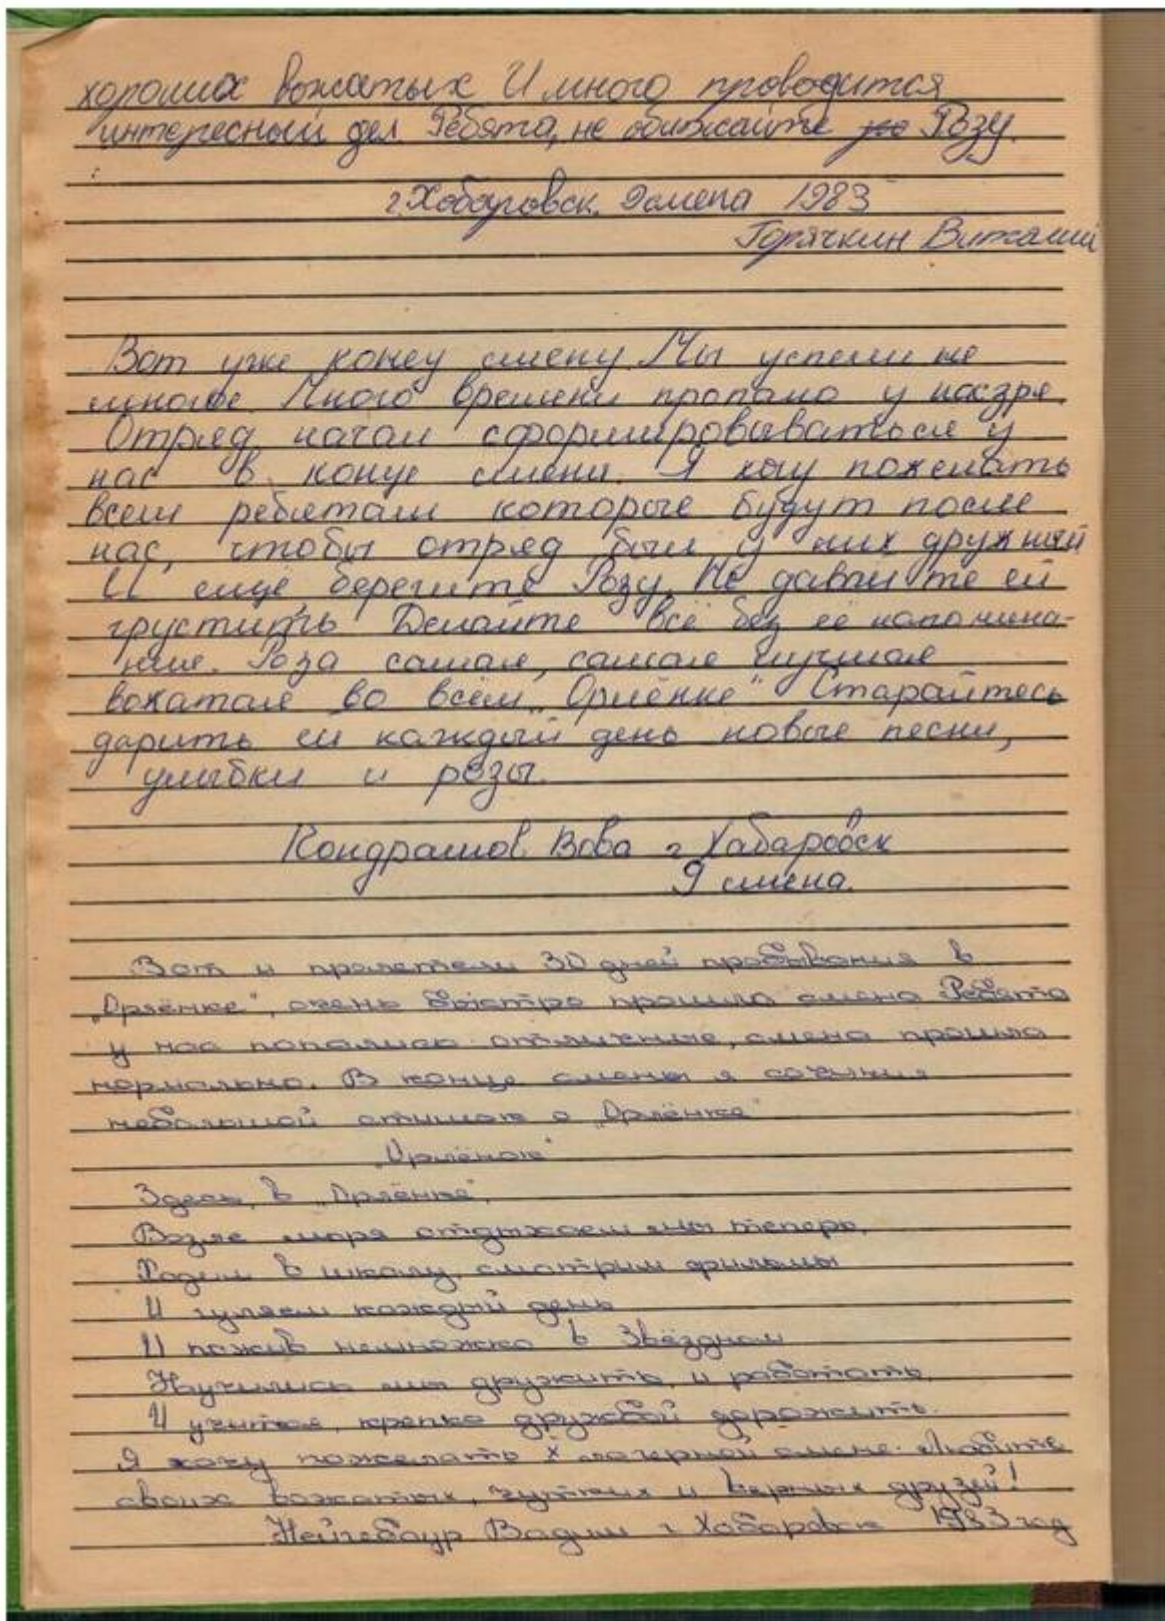 хороших вожатых И много проводится
интересный дел. Ребята, не обижайте Розу.
г.Хабаровск. 9смена 1983
Горячкин Виталий
Вот уже конец смену. Мы успели не
многое. Много времени пропало у насзря.
Отряд начал сформировываться у
нас в конце смени. Я хочу пожелать
всем ребятам которые будут после
нас, чтобы отряд был у них дружный
И ещё берегите Розу. Не давайте ей
грустить. Делайте всё без её напомина-
ния. Роза самая, самая лучшая
вожатая во всём „Орлёнке“ Старайтесь
дарить ей каждый день новые песни,
улыбки и розы.
Кондрашов Вова г Хабаровск
9 смена.
Вот и пролетели 30 дней пребывания в
„Орлёнке“, очень быстро прошла смена Ребята
у нас попались отличные, смена прошла
нормально. В конце смены я сочинил
небольшой стишок о „Орлёнке“
„Орлёнок“
Здесь, в „Орлёнке“,
Возле моря отдыхаем мы теперь,
Ходим в школу, смотрим фильмы
И гуляем каждый день
И пожив немножко в Звёздном
Научились мы дружить и работать,
И учится, крепко дружбой дорожить.
Я хочу пожелать X лагерной смене. Любите
своих вожатых, чутких и верных друзей!
Нейгебаур Вадим г Хабаровск 1983 год